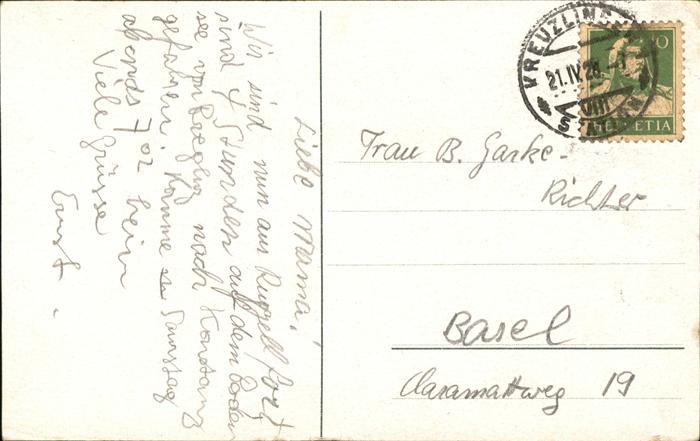 Liebe Mama!
Wir sind nun aus Ruggell fort
sind 4 Stunden auf dem Boden
see von nach Konstanz
gefahren. Komme Samstag
abends 7 02 heim
Viele Grüsse
Ernst.
KREUZLINGEN
21.IV.28.-1
VIII
10
HELVETIA
Frau B. Garke-
Richter
Basel
Claramattweg 19